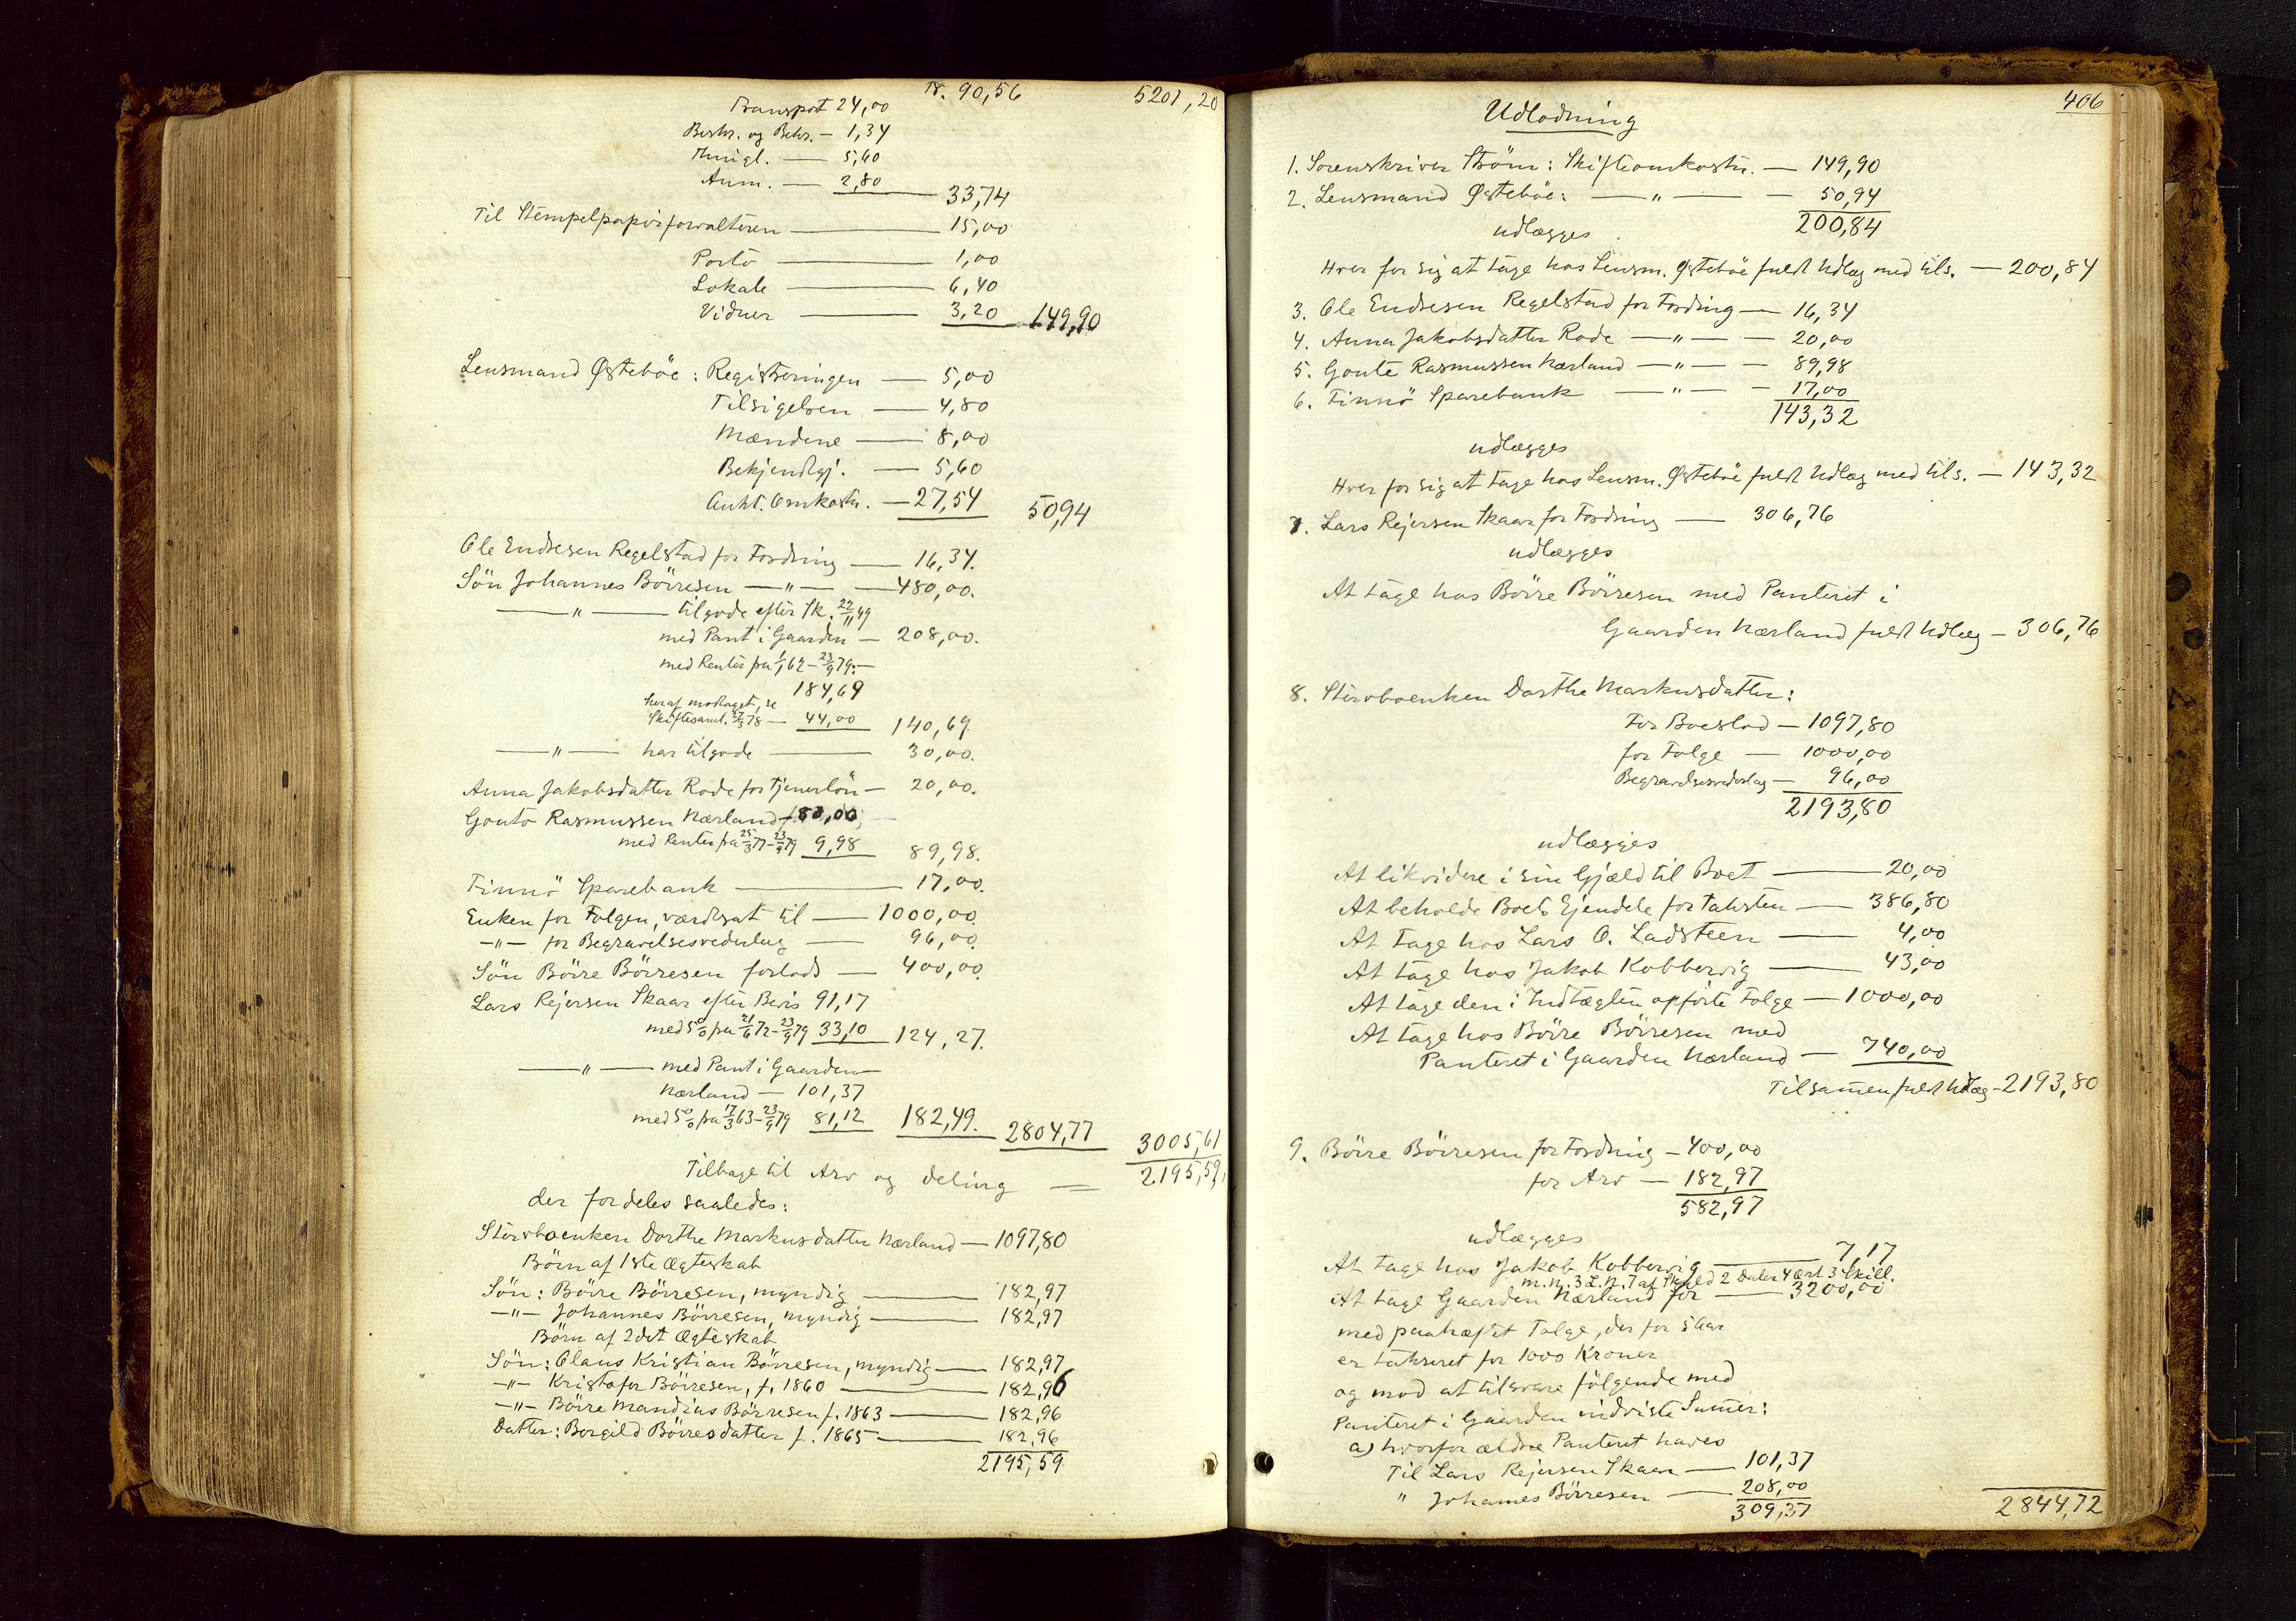 Transport 24,00 Tr. 90,56 5201,20
Beskr. og Behr. — 1,34
Thingl. — 5,60
Anm. — 2,80 33,74
Til Stempelpapirforvalteren — 15,00
Porto — 1,00
Lokale — 6,40
Vidner — 3,20 149,90
Lensmand Østebøe: Registreringen — 5,00
Tilsigelsen — 4,80
Mændene — 8,00
Bekjendtgj. — 5,60
Aukt. Omkostn. — 27,54 50,94
Ole Endresen Regelstad for Fordring — 16,34.
Sön Johannes Börresen — " — 480,00.
— " — tilgode efter Sk. 22/11 49
med Pant i Gaarden — 208,00.
med Renter fra 1/1 62 - 23/9 79 —
184,69
heraf modtaget, se
Skiftesaml. 27/3 78 — 44,00 140,69.
— " — har tilgode — 30,00.
Anna Jakobsdatter Rode for Tjenerlön — 20,00.
Goute Rasmussen Nærland 80,00,
med Renter fra 25/3 77 - 23/9 79 9,98 89,98.
Finnö Sparebank — 17,00.
Enken for Folgen, værdsat til — 1000,00
— " — for Begravelsesvederlag — 96,00.
Sön Börre Börresen forlods — 400,00.
Lars Rejersen Skaar efter Bevis 91,17
med 5% fra 21/6 72 - 23/9 79 33,10 124,27.
— " — med Pant i Gaarden
Nærland — 101,37
med 5% fra 17/3 63 - 23/9 79 81,12 182,49. 2804,77 3005,61
Tilbage til Arv og deling — 2195,59,
der fordeles saaledes:
Stervboenken Dorthe Markusdatter Nærland — 1097,80
Börn af 1ste Ægteskab
Sön: Börre Börresen, myndig — 182,97
— " — Johannes Börresen, myndig — 182,97
Börn af 2det Ægteskab
Sön: Olaus Kristian Börresen, myndig — 182,97
— " — Kristofer Börresen, f. 1860 — 182,96
— " — Börre Mandius Börresen f. 1863 — 182,96
Datter: Borgild Börresdatter f. 1865 — 182,96
2195,59
406
Udlodning
1. Sorenskriver Ström: Skifteomkostn. — 149,90
2. Lensmand Østebøe: — " — 50,94
udlægges 200,84
Hver for sig at tage hos Lensm. Østebøe fuldt Udlæg med tils. — 200,84
3. Ole Endresen Regelstad for Fordring — 16,34
4. Anna Jakobsdatter Rode — " — 20,00
5. Goute Rasmussen Nærland — " — 89,98
6. Finnö Sparebank — " — 17,00
143,32
udlægges
Hver for sig at tage hos Lensm. Østebøe fuldt Udlæg med tils. — 143,32
7. Lars Rejersen Skaar for Fordring — 306,76
udlægges
At tage hos Börre Börresen med Panteret i
Gaarden Nærland fuldt Udlæg — 306,76
8. Stervboenken Dorthe Markusdatter:
For Boeslod — 1097,80
for Folge — 1000,00
Begravelsesvederlag — 96,00
2193,80
udlægges
At likvidere i sin Gjæld til Boet — 20,00
At beholde Boets Ejendele for Taksten — 386,80
At tage hos Lars O. Ladsteen — 4,00
At tage hos Jakob Kobbervig — 43,00
At tage den i Indtægten opförte Folge — 1000,00
At tage hos Börre Börresen med
Panteret i Gaarden Nærland — 740,00
Tilsamen fuldt Udlæg — 2193,80
9. Börre Börresen for Fordring — 400,00
for Arv — 182,97
582,97
udlægges
At tage hos Jakob Kobbervig — 7,17
m. N. 3 L. N. 7 af Skyld 2 Daler 4 Ort 3 Skill.
At tage Gaarden Nærland for — 3200,00
med paahæftet Folge, der for 5 Aar
er takseret for 1000 Kroner
og mod at tilsvare fölgende med
Panteret i Gaarden indviste Summer:
a) hvorfor ældre Panteret haves
Til Lars Rejersen Skaar — 101,37
" Johannes Börresen — 208,00
309,37 2844,72